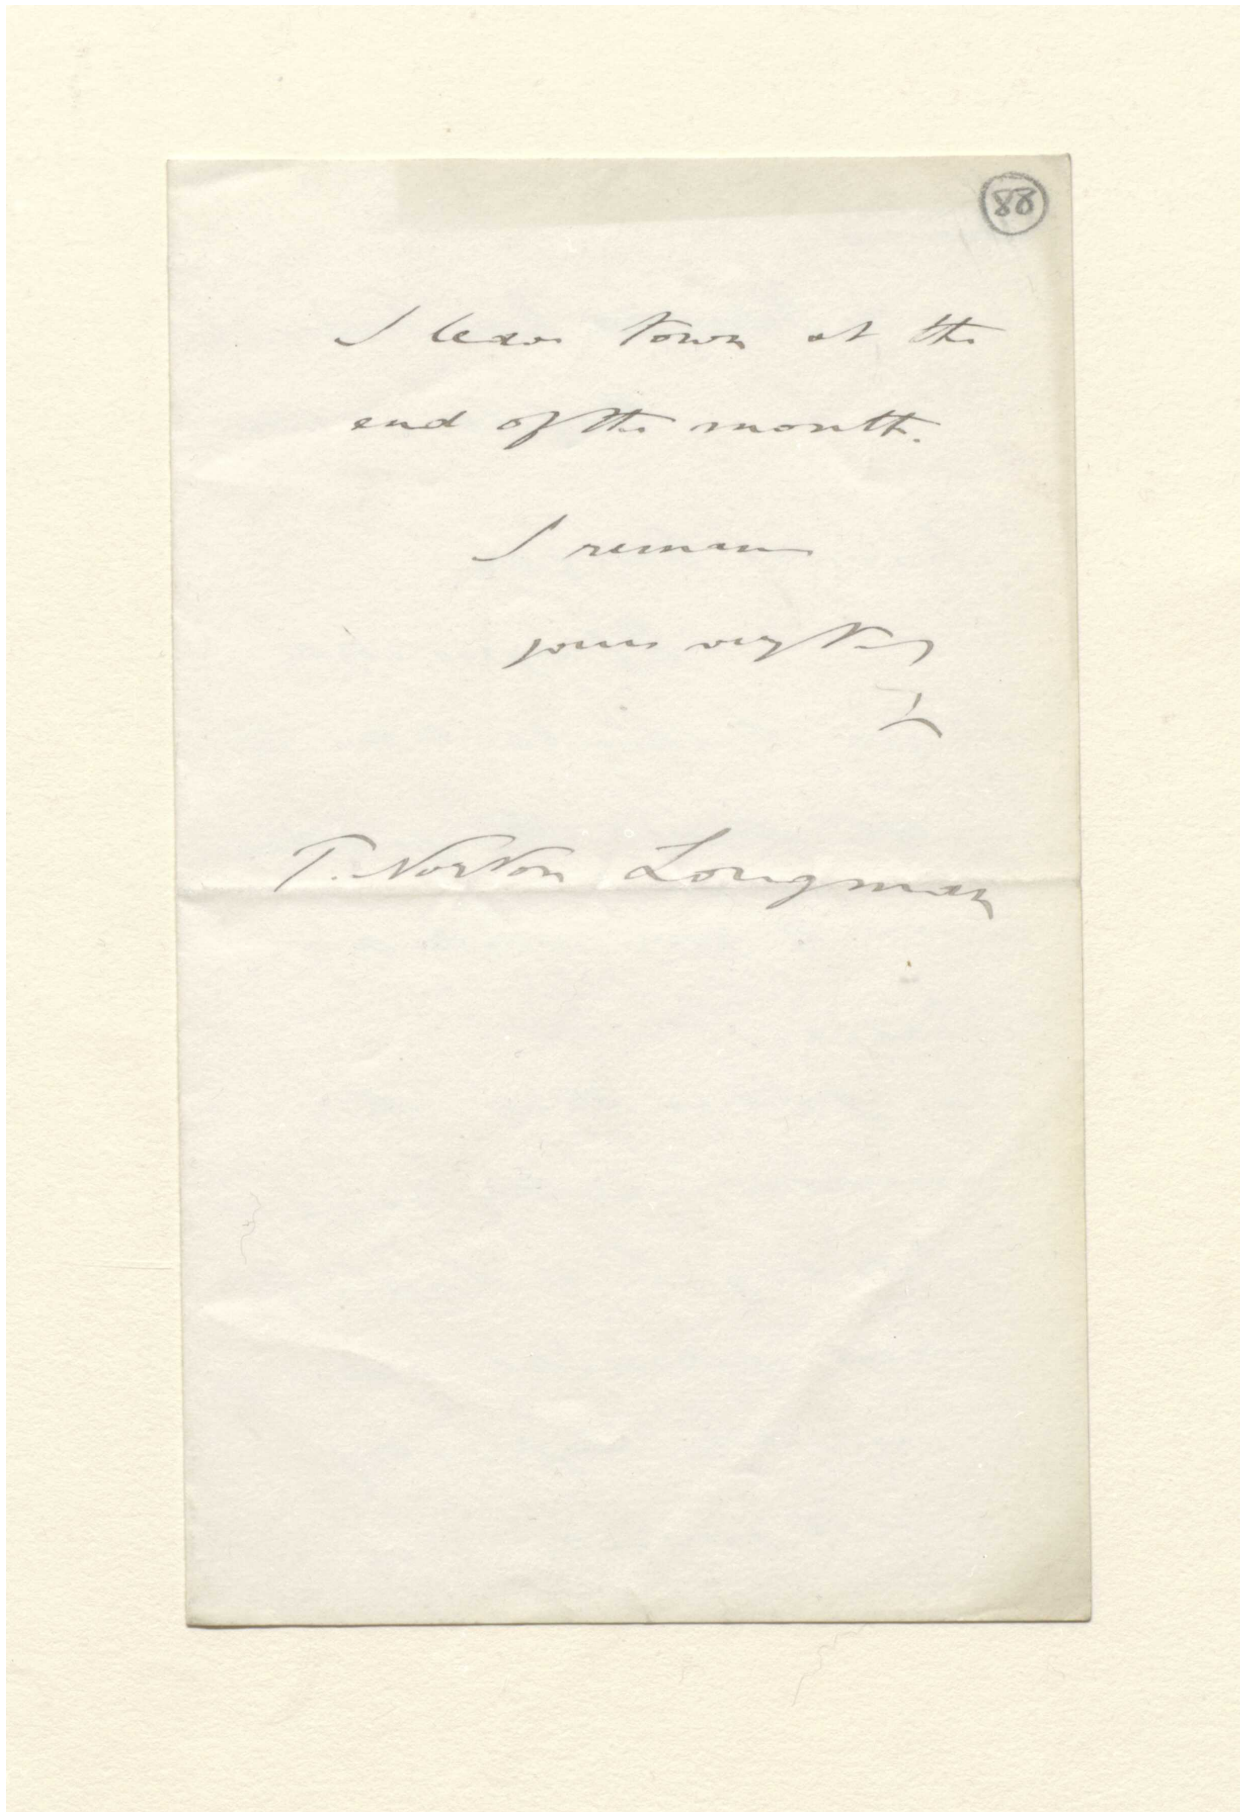 88
I leave town at the
end of the month.
I remain
yours very truly
T. Norton Longman